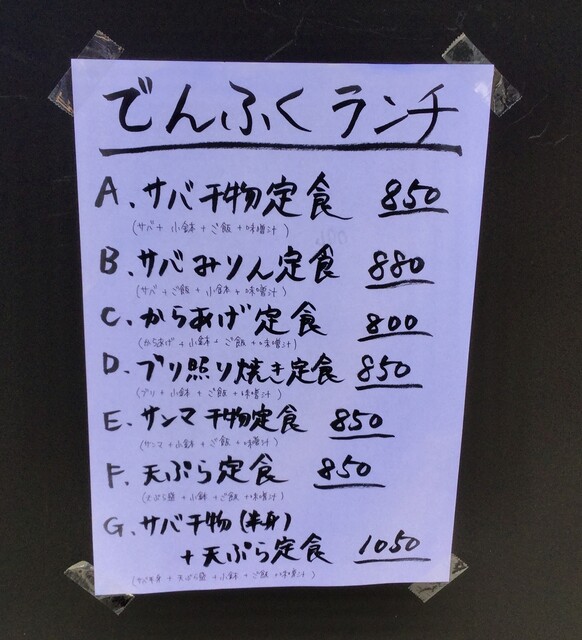 でんふくランチ
A、サバ干物定食 850
(サバ + 小鉢 + ご飯 + 味噌汁)
B、サバみりん定食 880
(サバ + ご飯 + 小鉢 + 味噌汁)
C、からあげ定食 800
(からあげ + 小鉢 + ご飯 + 味噌汁)
D、ブリ照り焼き定食 850
(ブリ + 小鉢 + ご飯 + 味噌汁)
E、サンマ干物定食 850
(サンマ + 小鉢 + ご飯 + 味噌汁)
F、天ぷら定食 850
(天ぷら盛 + 小鉢 + ご飯 + 味噌汁)
G、サバ干物(半身)
+天ぷら定食 1050
(サバ半身 + 天ぷら盛 + 小鉢 + ご飯 + 味噌汁)